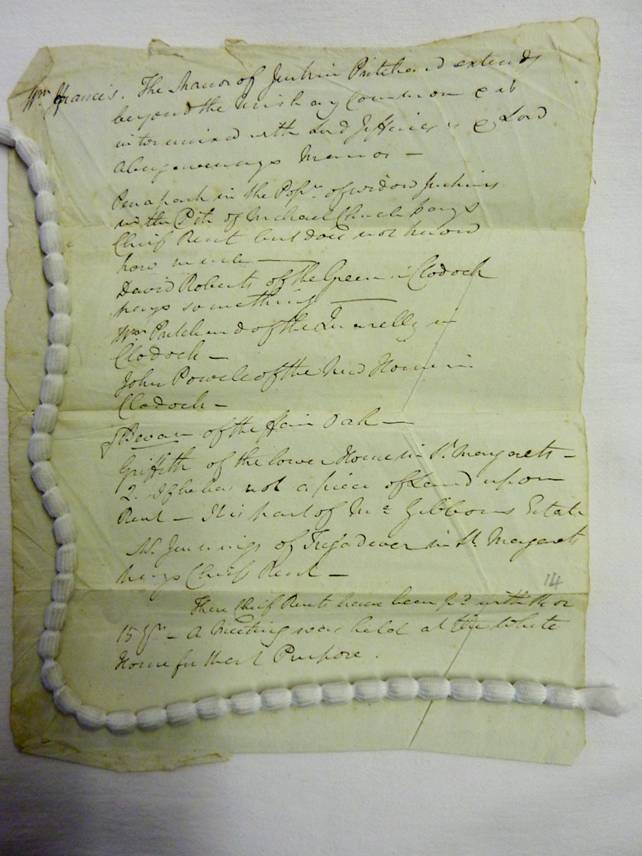 Wm Francis. The Manor of Jenkin Pritchard extends
beyond the Irish any Common & is
intermixed with Lord Jefferies's & Lord
Abergavennys Manor —
Pen a park in the Possn of widow Jenkins
in the Psh of Michael Church pays
Chief Rent but does not know
how much —
David Roberts of the Green in Clodock
pays something —
Wm Pritchard of the Quarelly in
Clodock —
John Powell of the New House in
Clodock —
Bevan of the Fair Oak —
Griffith of the lower House in St Margarets —
2. If he has not a piece of Land upon
Rent — It is part of Mr Gibbons Estate
W. Jennings of Trefadewer in St Margarets
pays Chief Rent —
14
These Chief Rents have been pd within 14 or
15 Yrs — A Meeting was held at the White
House for that Purpose.